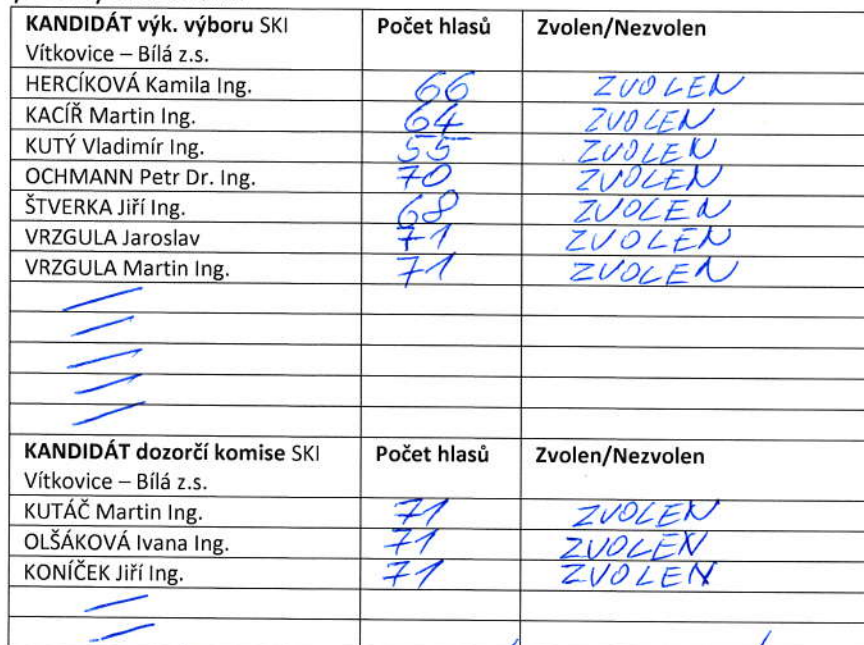 KANDIDÁT výk. výboru SKI Počet hlasů Zvolen/Nezvolen
Vítkovice – Bílá z.s.
HERCÍKOVÁ Kamila Ing. 66 ZVOLEN
KACÍŘ Martin Ing. 64 ZVOLEN
KUTÝ Vladimír Ing. 55 ZVOLEN
OCHMANN Petr Dr. Ing. 70 ZVOLEN
ŠTVERKA Jiří Ing. 68 ZVOLEN
VRZGULA Jaroslav 71 ZVOLEN
VRZGULA Martin Ing. 71 ZVOLEN
KANDIDÁT dozorčí komise SKI Počet hlasů Zvolen/Nezvolen
Vítkovice – Bílá z.s.
KUTÁČ Martin Ing. 71 ZVOLEN
OLŠÁKOVÁ Ivana Ing. 71 ZVOLEN
KONÍČEK Jiří Ing. 71 ZVOLEN